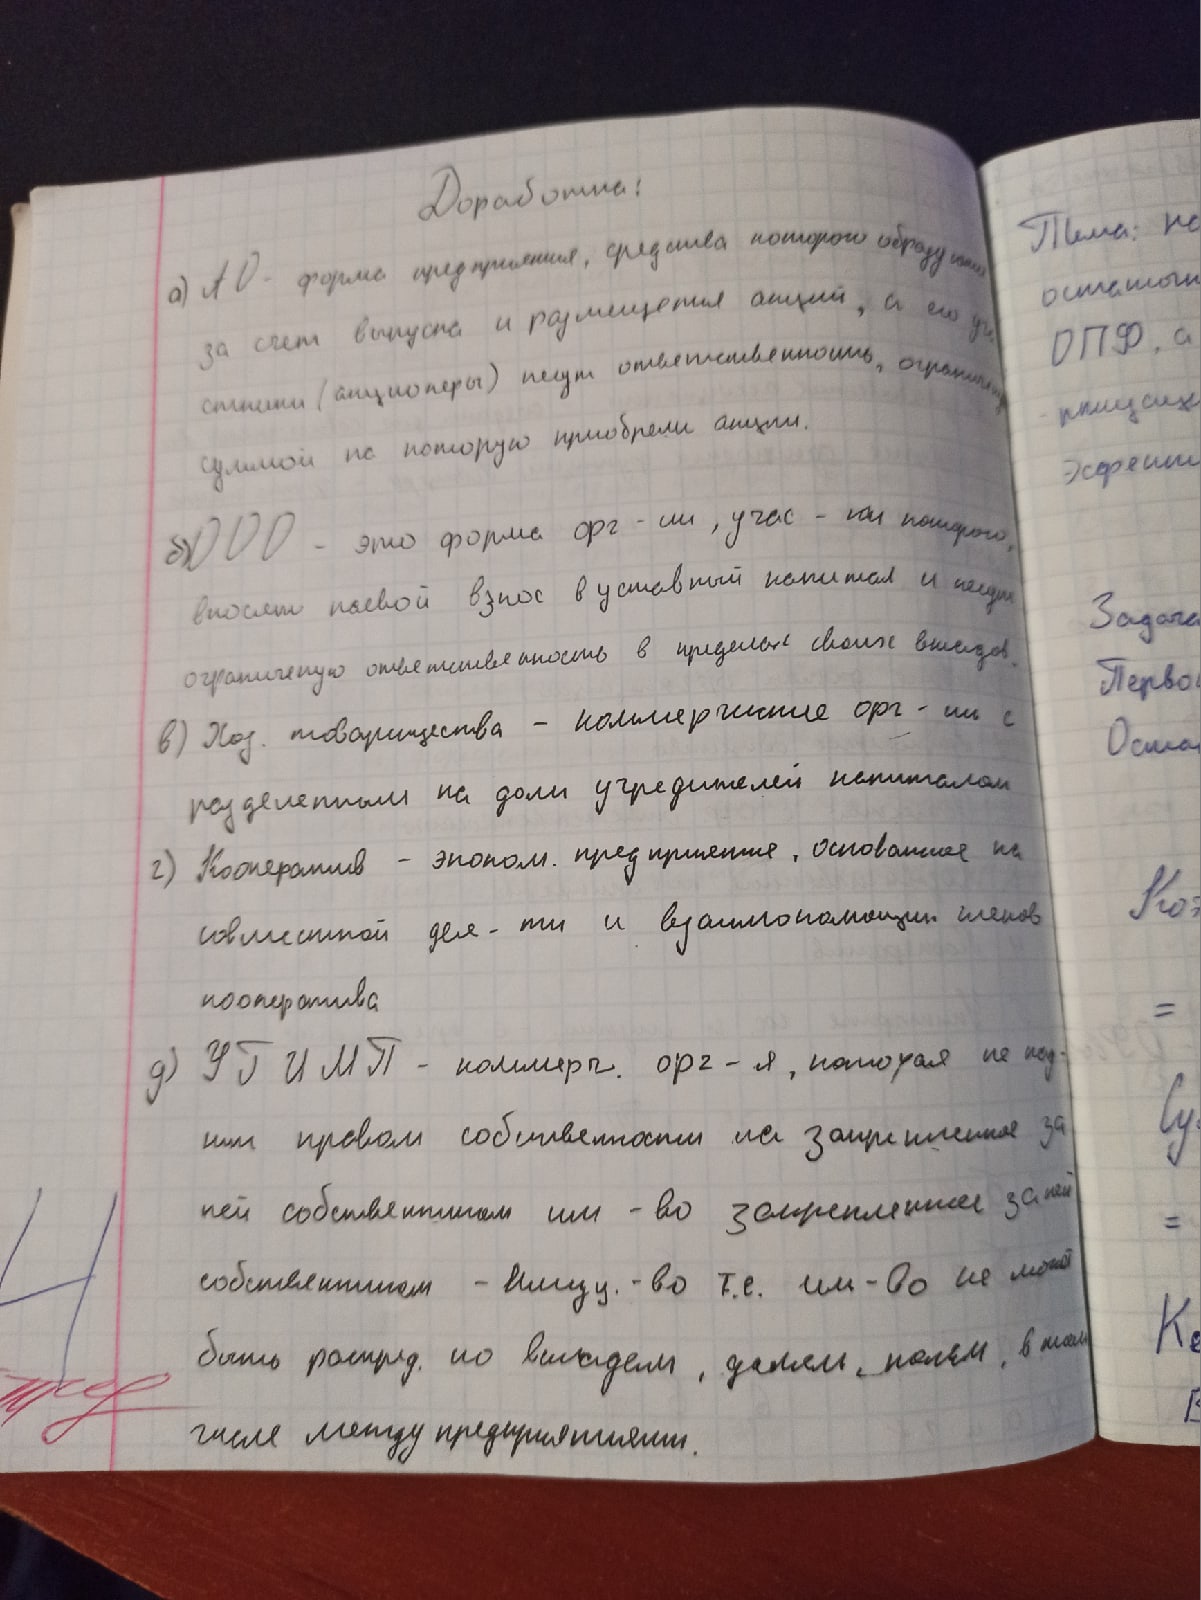 Доработка:
а) АО - форма предприятия, средства которого образу
за счет выпуска и размещения акций, а его уч
стники (акционеры) несут ответственность, огранич
суммой на которую приобрели акции.
б) ООО - это форма орг-ии, учас-ки которого,
вносят паевой взнос в уставный капитал и несут
ограниченую ответственность в пределах своих вкладов.
в) Хоз. товарищества - коммерчиские орг-ии с
разделенным на доли учредителей капиталом
г) Кооператив - эконом. предприятие, основанное на
совместной дея-ти и взаимопомощи членов
кооператива
д) УГ И МП - коммерч. орг-я, которая не над-
ким правом собственности на закрепленное за
ней собственником им-во закрепленное за ней
собственником - Имущ.-во т.е. им-во не может
быть распред. по вкладам, долям, паям, в том
числе между предприятиями.
4
Тема: на
остаточн
ОПФ, а
рающих
эффекти
Задача
Первон
Остат
Коэ
=
Су
=
Ко
В